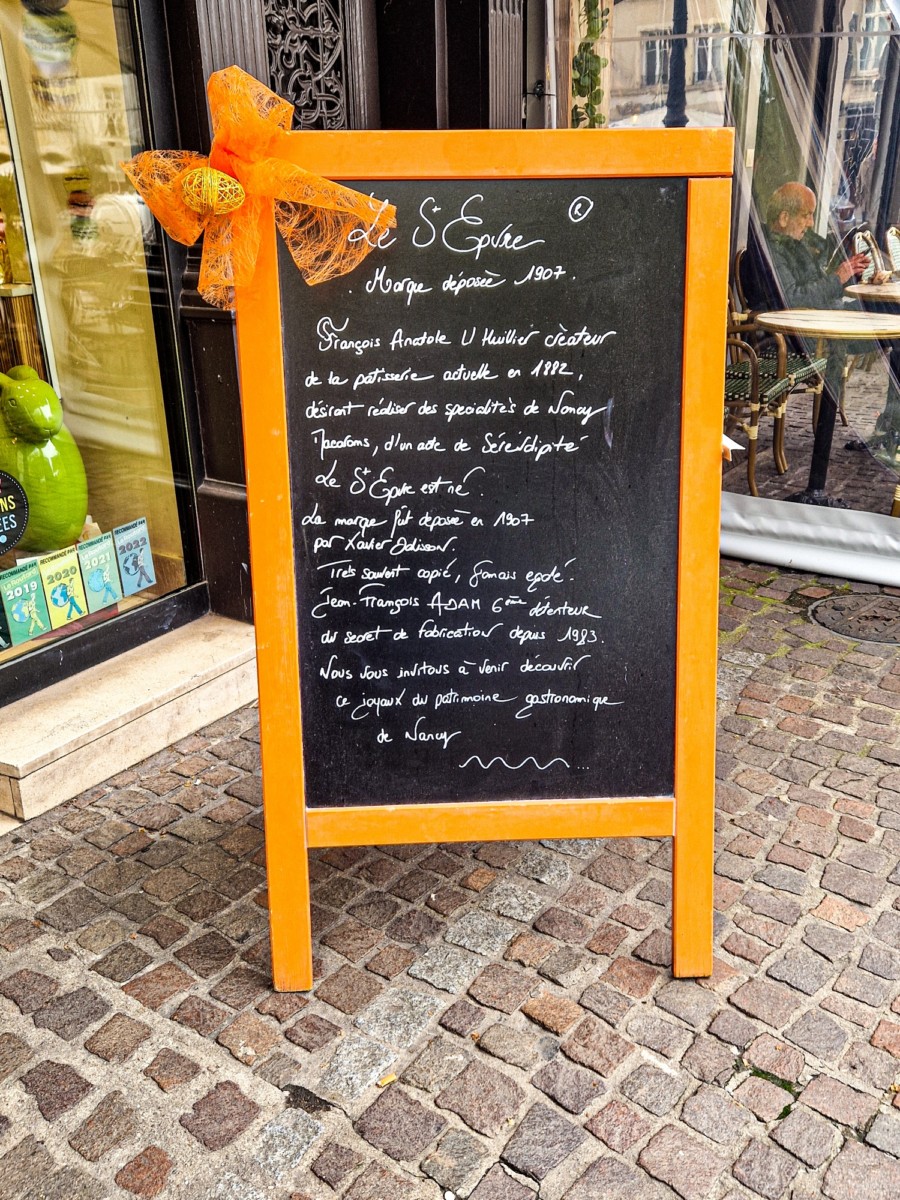 Le St Epvre ®
Marque déposée 1907.
François Anatole L'Huillier crèateur
de la patisserie actuelle en 1882,
désirant réaliser des specialités de Nancy
Macarons, d'un acte de Sérendipité
Le St Epvre est né.
La marque fût deposée en 1907
par Xavier
Très souvent copié, jamais egalé.
Jean-François ADAM 6ème détenteur
du secret de fabrication depuis 1983.
Nous vous invitons à venir découvrir
ce joyaux du patrimoine gastronomique
de Nancy
NS
ÉES
RECOMMANDÉ PAR
2019
RECOMMANDÉ PAR
2020
RECOMMANDÉ PAR
2021
RECOMMANDÉ PAR
2022